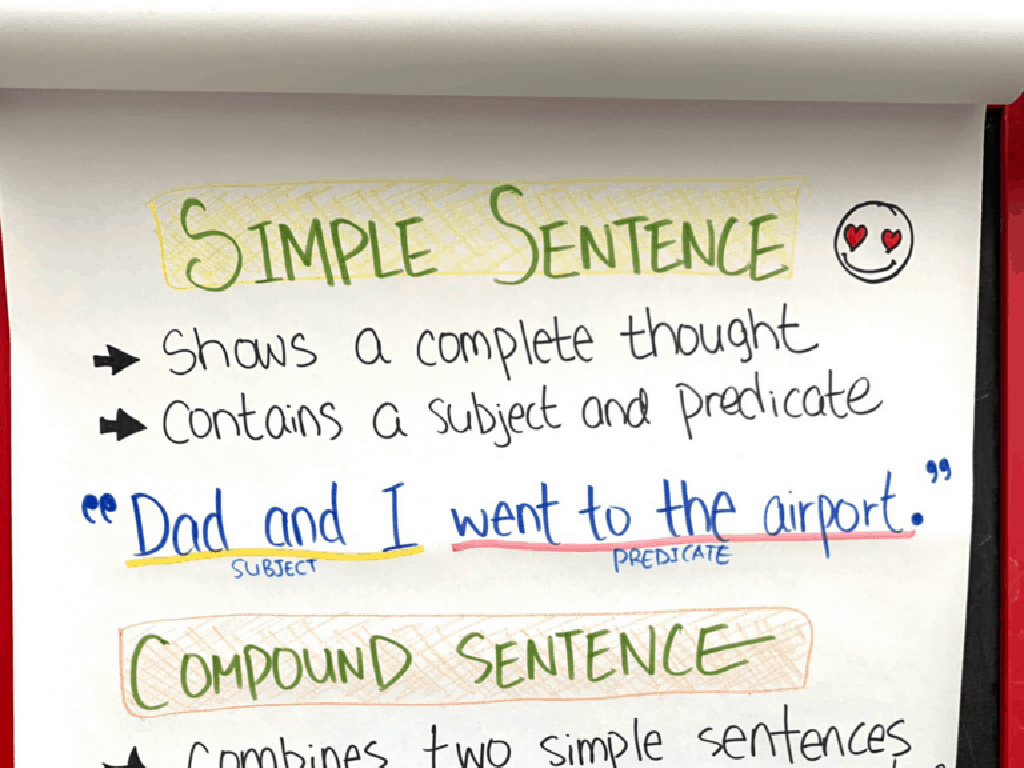 SIMPLE SENTENCE
Shows a complete thought
Contains a subject and predicate
“Dad and I went to the airport.”
SUBJECT PREDICATE
COMPOUND SENTENCE
Combines two simple sentences